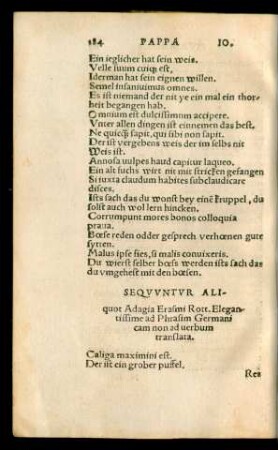 184 PAPPA IO.
Ein ieglicher hat sein weis.
Velle suum cuiq; est,
Iderman hat sein eignen willen.
Semel insaniuimus omnes.
Es ist niemand der nit ye ein mal ein thor⸗
heit begangen hab.
Omnium est dulcissimum accipere.
Vnter allen dingen ist einnemen das best.
Ne quicq̃ sapit, qui sibi non sapit.
Der ist vergebens weis der im selbs nit
Weis ist.
Annosa vulpes haud capitur laqueo.
Ein alt fuchs wirt nit mit stricken gefangen
Si iuxta claudum habites subclaudicare
disces.
Ists sach das du wonst bey einẽ kruppel, du
solst auch wol lern hincken.
Corrumpunt mores bonos colloquia
praua.
Bœse reden odder gesprech verhœnen gute
sytten.
Malus ipse fies, si malis conuixeris.
Du wierst selber bœs werden ists sach das
du vmgehest mit den bœsen.
SEQVVNTVR ALI-
quot Adagia Erasmi Rott. Elegan-
tissime ad Phrasim Germani
cam non ad verbum
translata.
Caliga maximini est.
Der ist ein grober puffel.
Res